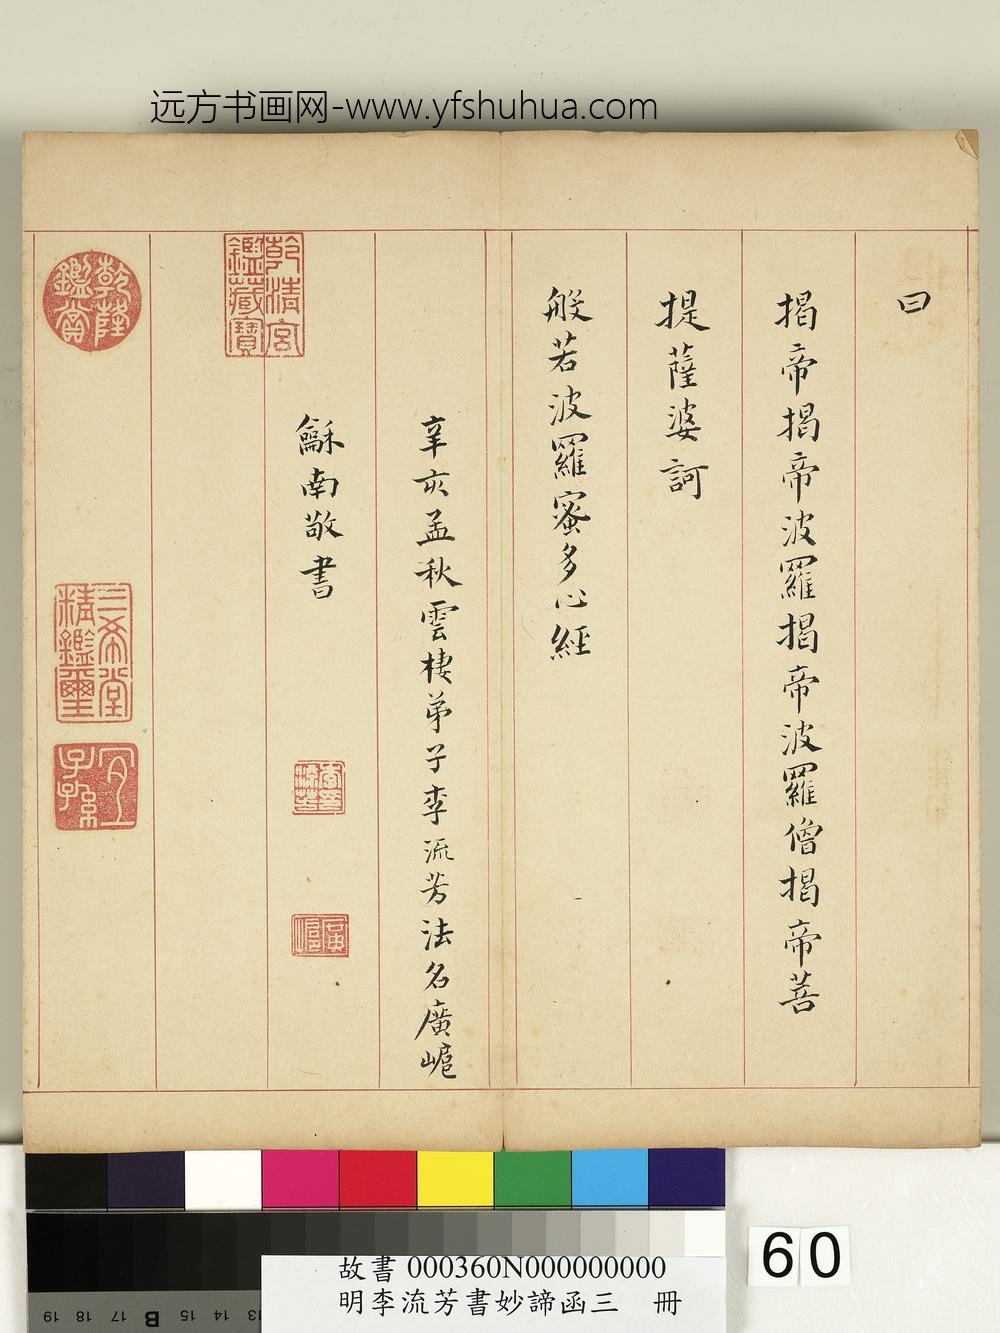 远方书画网-www.yfshuhua.com
曰
揭帝揭帝波羅揭帝波羅僧揭帝菩
提薩婆訶
般若波羅蜜多心經
辛亥孟秋雲棲弟子李流芳法名廣嶇
龢南敬書
乾清宮
鑑藏寶
李印
流芳
乾隆
鑑賞
三希堂
精鑑璽
宜
子孫
60
故書 000360N000000000
明李流芳書妙諦函三 冊
19 18 17 B 15 14 13